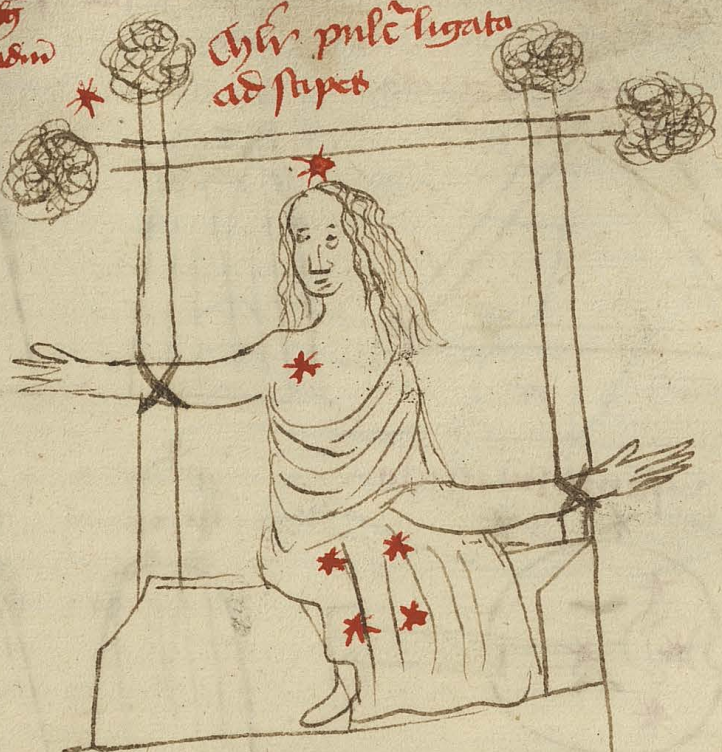 Mlr̄ pulc̄ ligata
ad stipes